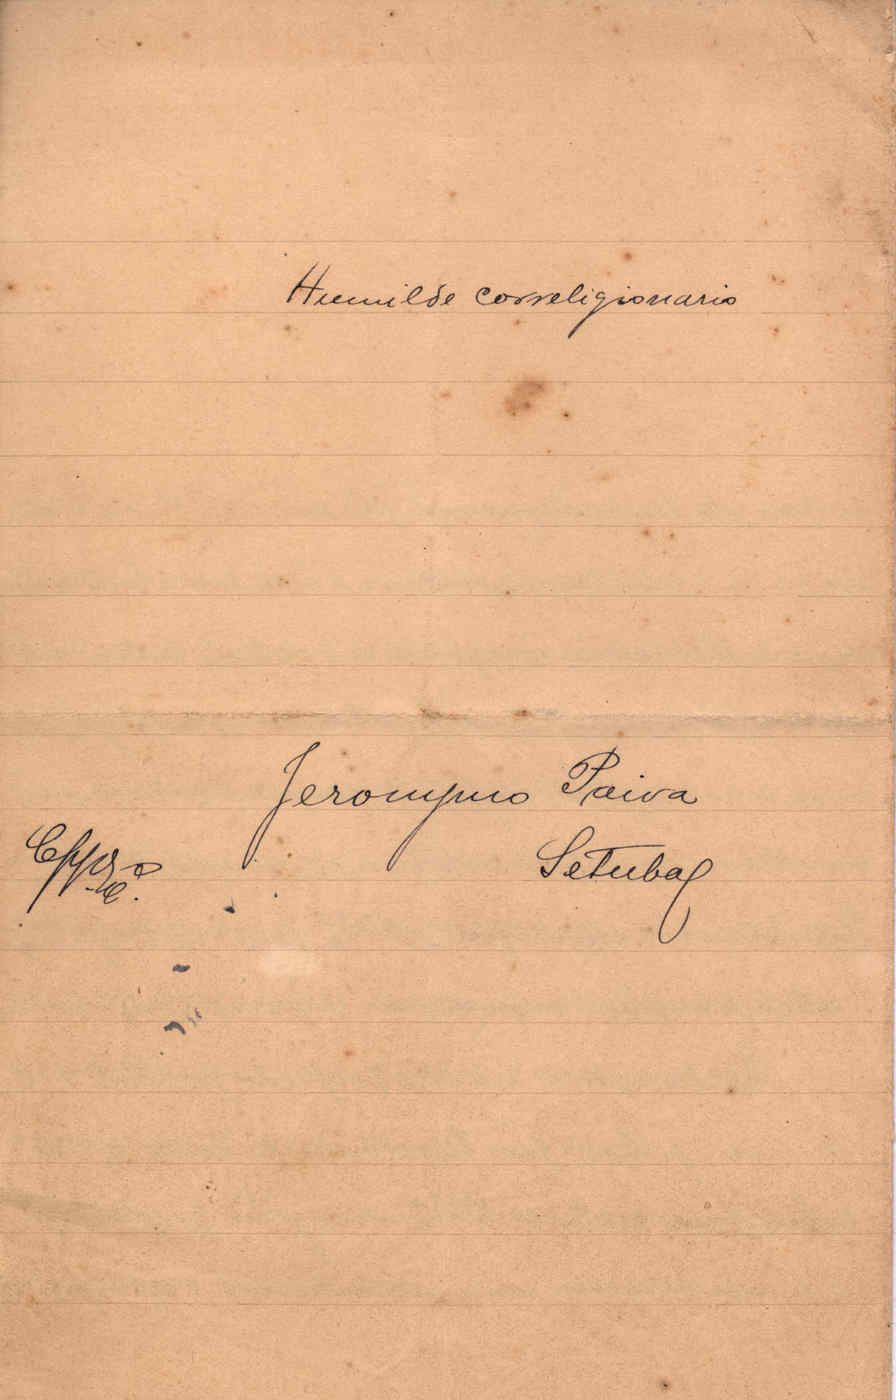 Humilde correligionario
Jeronymo Paiva
Setubal